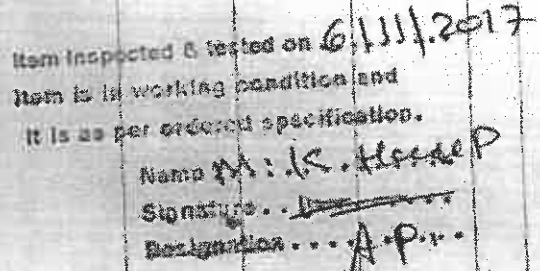 Item Inspected & tested on 6.III.2017
Item is in working condition and
it is as per ordered specification.
Name M.K.
Signature..
Designation.... A.P...